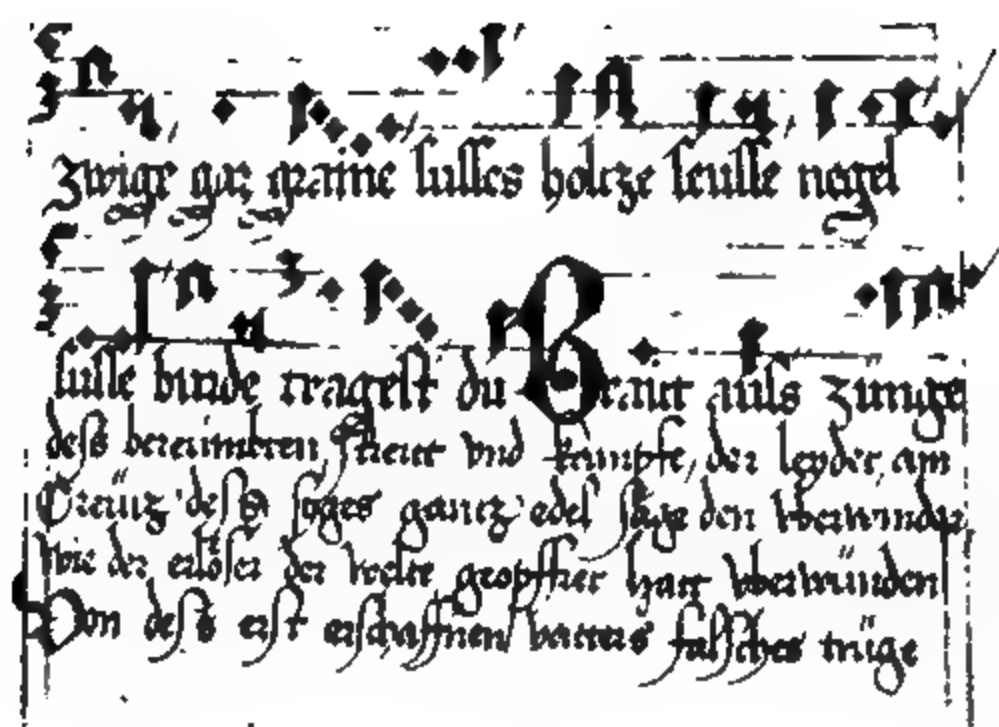 zwige gar grame susses holcze seusse negel
susse burde tragest du Braut auss zunge
dess bereumbten streitt vnd kampfs, der leyder, am
Creüz dess soges gancz edel sage den vberwinder,
wie der erlöser der welte geopffret hatt vberwünden
Von dess erst erschaffnen vatters falsches trüge